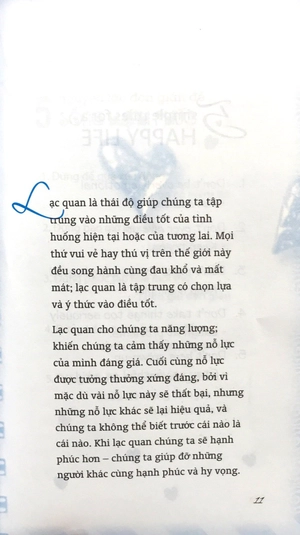 Lạc quan là thái độ giúp chúng ta tập
trung vào những điều tốt của tình
huống hiện tại hoặc của tương lai. Mọi
thứ vui vẻ hay thú vị trên thế giới này
đều song hành cùng đau khổ và mất
mát; lạc quan là tập trung có chọn lựa
và ý thức vào điều tốt.
Lạc quan cho chúng ta năng lượng;
khiến chúng ta cảm thấy những nỗ lực
của mình đáng giá. Cuối cùng nỗ lực
được tưởng thưởng xứng đáng, bởi vì
mặc dù vài nỗ lực này sẽ thất bại, nhưng
những nỗ lực khác sẽ lại hiệu quả, và
chúng ta không thể biết trước cái nào là
cái nào. Khi lạc quan chúng ta sẽ hạnh
phúc hơn – chúng ta giúp đỡ những
người khác cùng hạnh phúc và hy vọng.
11